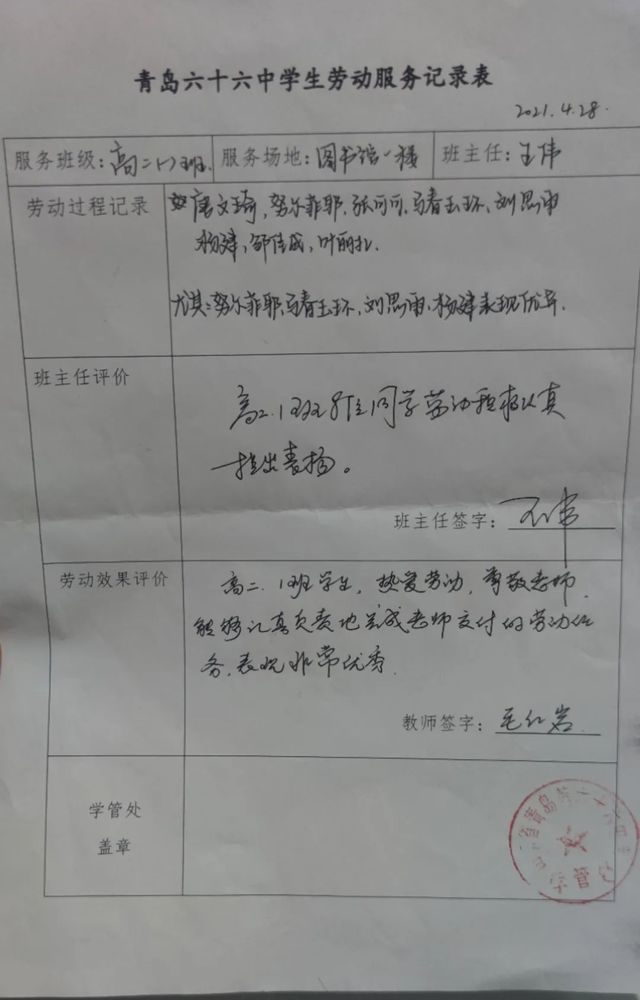 青岛六十六中学生劳动服务记录表
2021.4.28.
服务班级:高二(1)班 服务场地:图书馆一楼 班主任:王伟
劳动过程记录 唐文琦,努尔菲耶、张可可、马春玉环、刘思雨
杨建,邹佳成,叶丽扎.
尤其:努尔菲耶、马春玉环、刘思雨、杨建表现优异.
班主任评价
高二.1班8位同学劳动积极认真
提出表扬。
班主任签字:王伟
劳动效果评价 高二.1班学生,热爱劳动,尊敬老师
能够认真负责地完成老师交付的劳动任
务,表现非常优秀.
教师签字:毛红岩
学管处
盖章